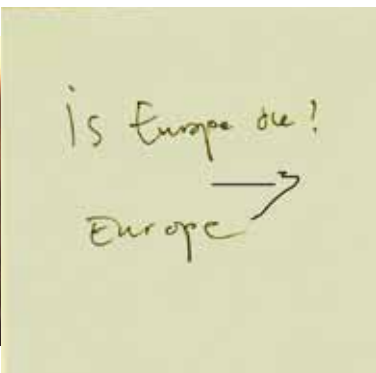 is Europe one?
Europe